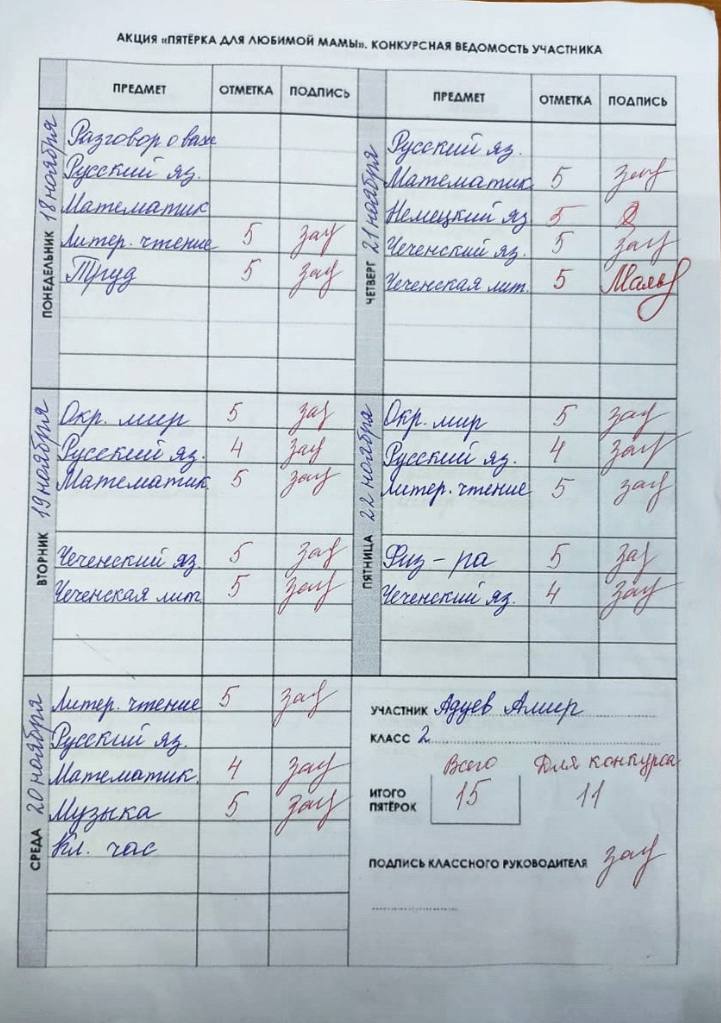 АКЦИЯ «ПЯТЁРКА ДЛЯ ЛЮБИМОЙ МАМЫ». КОНКУРСНАЯ ВЕДОМОСТЬ УЧАСТНИКА
ПРЕДМЕТ ОТМЕТКА ПОДПИСЬ
ПОНЕДЕЛЬНИК 18 ноября
Разговор о важ
Русский яз.
Математик
Литер. чтение 5 зау
Труд 5 зау
ВТОРНИК 19 ноября
Окр. мир 5 зау
Русский яз. 4 зау
Математик 5 зау
Чеченский яз. 5 зау
Чеченская лит. 5 зау
СРЕДА 20 ноября
Литер. чтение 5 зау
Русский яз.
Математик. 4 зау
Музыка 5 зау
Кл. час
ПРЕДМЕТ ОТМЕТКА ПОДПИСЬ
ЧЕТВЕРГ 21 ноября
Русский яз.
Математик 5 зау
Немецкий яз 5
Чеченский яз. 5 зау
Чеченская лит. 5
ПЯТНИЦА 22 ноября
Окр. мир 5 зау
Русский яз. 4 зау
Литер. чтение 5 зау
Физ-ра 5 зау
Чеченский яз. 4 зау
УЧАСТНИК Адуев Амир
КЛАСС 2
Всего Для конкурса
ИТОГО ПЯТЁРОК 15 11
ПОДПИСЬ КЛАССНОГО РУКОВОДИТЕЛЯ зау